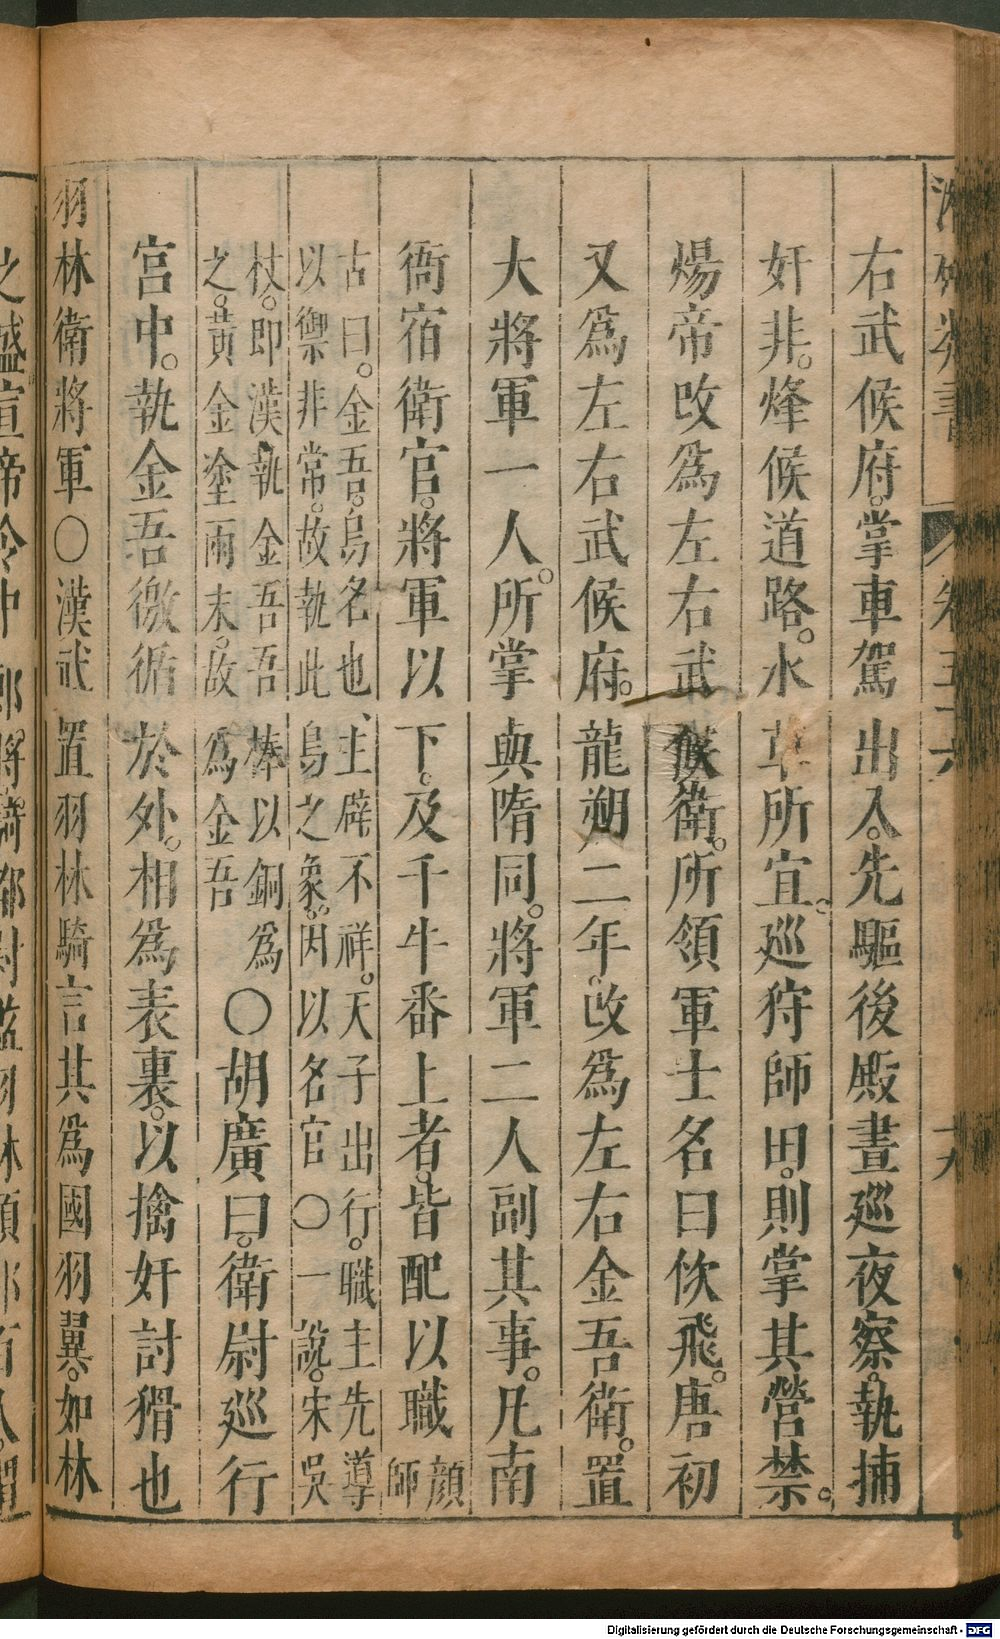 右武候府。掌車駕出入。先驅後殿晝巡夜察。執捕
奸非。烽候道路。水草所宜。巡狩師田。則掌其營禁。
煬帝改爲左右武候衛。所領軍士名曰佽飛。唐初
又爲左右武候府。龍朔二年。改爲左右金吾衛。置
大將軍一人。所掌與隋同。將軍二人副其事。凡南
衙宿衛官。將軍以下。及千牛番上者。皆配以職顔師
古曰。金吾。鳥名也、主辟不祥。天子出行。職主先導
以禦非常。故執此鳥之象。因以名官〇一說。宋吳
杖。即漢執金吾吾棒以銅爲
之。黄金塗兩末。故爲金吾
〇胡廣曰。衛尉巡行
宮中。執金吾徼循於外。相爲表裏。以擒奸討猾也
羽林衛將軍〇漢武置羽林騎言其爲國羽翼。如林
卷五十六
十九
之盛宣帝令中郎將。騎都尉監羽林領郎百人。謂
Digitalisierung gefördert durch die Deutsche Forschungsgemeinschaft - DFG